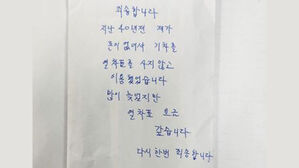 죄송합니다
지난 40년전 제가
돈이 없어서 기차를
열차표를 사지 않고
이용했었습니다
많이 늦었지만
열차표 요금
갚습니다
다시한번 죄송합니다